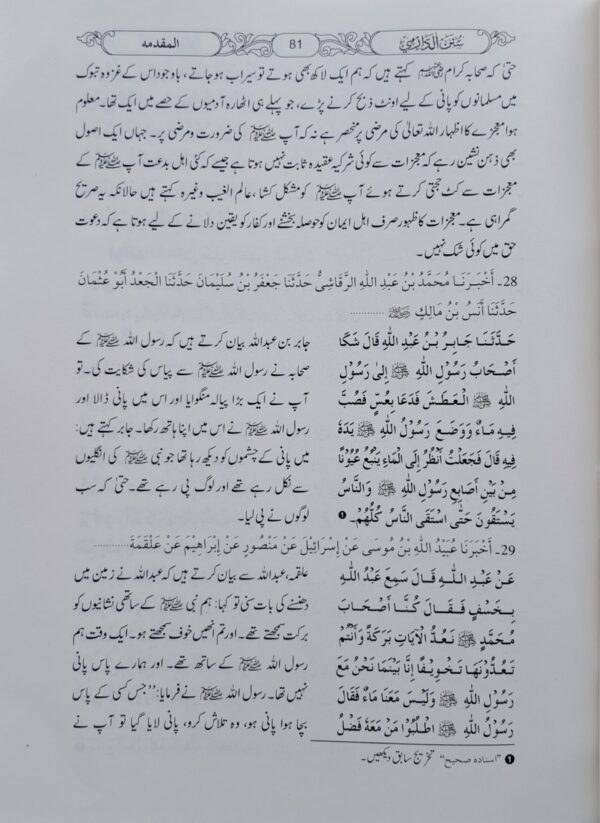 سُنَنُ الدَّارِمِيّ
81
المقدمه
حتیٰ کہ صحابہ کرام رضی اللہ عنہم کہتے ہیں کہ ہم ایک لاکھ بھی ہوتے تو سیراب ہو جاتے، باوجود اس کے غزوہ تبوک
میں مسلمانوں کو پانی کے لیے اونٹ ذبح کرنے پڑے، جو پہلے ہی اٹھارہ آدمیوں کے حصے میں ایک تھا۔ معلوم
ہوا معجزے کا اظہار اللہ تعالیٰ کی مرضی پر منحصر ہے نہ کہ آپ ﷺ کی ضرورت و مرضی پر۔ جہاں ایک اصول
بھی ذہن نشین رہے کہ معجزات سے کوئی شرکیہ عقیدہ ثابت نہیں ہوتا ہے جیسے کہ کئی اہل بدعت آپ ﷺ کے
معجزات سے کٹ حجتی کرتے ہوئے آپ ﷺ کو مشکل کشا، عالم الغیب وغیرہ کہتے ہیں حالانکہ یہ صریح
گمراہی ہے۔ معجزات کا ظہور صرف اہل ایمان کو حوصلہ بخشنے اور کفار کو یقین دلانے کے لیے ہوتا ہے کہ دعوت
حق میں کوئی شک نہیں۔
28۔ أَخْبَرَنَا مُحَمَّدُ بْنُ عَبْدِ اللهِ الرَّقَاشِيُّ حَدَّثَنَا جَعْفَرُ بْنُ سُلَيْمَانَ حَدَّثَنَا الْجَعْدُ أَبُو عُثْمَانَ
حَدَّثَنَا أَنَسُ بْنُ مَالِكٍ رضی اللہ عنہ ............
حَدَّثَنَا جَابِرُ بْنُ عَبْدِ اللهِ قَالَ شَكَا
أَصْحَابُ رَسُوْلِ اللهِ ﷺ إِلَى رَسُوْلِ
اللهِ ﷺ الْعَطَشَ فَدَعَا بِعُسٍّ فَصُبَّ
فِيهِ مَاءٌ وَوَضَعَ رَسُوْلُ اللهِ ﷺ يَدَهُ
فِيهِ قَالَ فَجَعَلْتُ أَنْظُرُ إِلَى الْمَاءِ يَنْبُعُ عُيُوْنًا
مِنْ بَيْنِ أَصَابِعِ رَسُوْلِ اللهِ ﷺ وَالنَّاسُ
يَسْتَقُوْنَ حَتَّى اسْتَقَى النَّاسُ كُلُّهُمْ۔ ❶
جابر بن عبداللہ بیان کرتے ہیں کہ رسول اللہ ﷺ کے
صحابہ نے رسول اللہ ﷺ سے پیاس کی شکایت کی۔ تو
آپ نے ایک بڑا پیالہ منگوایا اور اس میں پانی ڈالا اور
رسول اللہ ﷺ نے اس میں اپنا ہاتھ رکھا۔ جابر کہتے ہیں:
میں پانی کے چشموں کو دیکھ رہا تھا جو نبی ﷺ کی انگلیوں
سے نکل رہے تھے اور لوگ پی رہے تھے۔ حتیٰ کہ سب
لوگوں نے پی لیا۔
29۔ أَخْبَرَنَا عُبَيْدُ اللهِ بْنُ مُوسَى عَنْ إِسْرَائِيْلَ عَنْ مَنْصُورٍ عَنْ إِبْرَاهِيْمَ عَنْ عَلْقَمَةَ ............
عَنْ عَبْدِ اللهِ قَالَ سَمِعَ عَبْدُ اللهِ
بِخَسْفٍ فَقَالَ كُنَّا أَصْحَابَ
مُحَمَّدٍ ﷺ نَعُدُّ الْآيَاتِ بَرَكَةً وَأَنْتُمْ
تَعُدُّوْنَهَا تَخْوِيْفًا إِنَّا بَيْنَمَا نَحْنُ مَعَ
رَسُوْلِ اللهِ ﷺ وَلَيْسَ مَعَنَا مَاءٌ فَقَالَ
رَسُوْلُ اللهِ ﷺ اطْلُبُوْا مَنْ مَعَهُ فَضْلُ
علقمہ، عبداللہ سے بیان کرتے ہیں کہ عبداللہ نے زمین میں
دھنسنے کی بات سنی تو کہا: ہم نبی ﷺ کے ساتھی نشانیوں کو
برکت سمجھتے تھے۔ اور تم انھیں خوف سمجھتے ہو۔ ایک وقت ہم
رسول اللہ ﷺ کے ساتھ تھے۔ اور ہمارے پاس پانی
نہیں تھا۔ رسول اللہ ﷺ نے فرمایا: ’’جس کسی کے پاس
بچا ہوا پانی ہو، وہ تلاش کرو، پانی لایا گیا تو آپ نے
❶ "اسناده صحیح" تخریج سابق دیکھیں۔